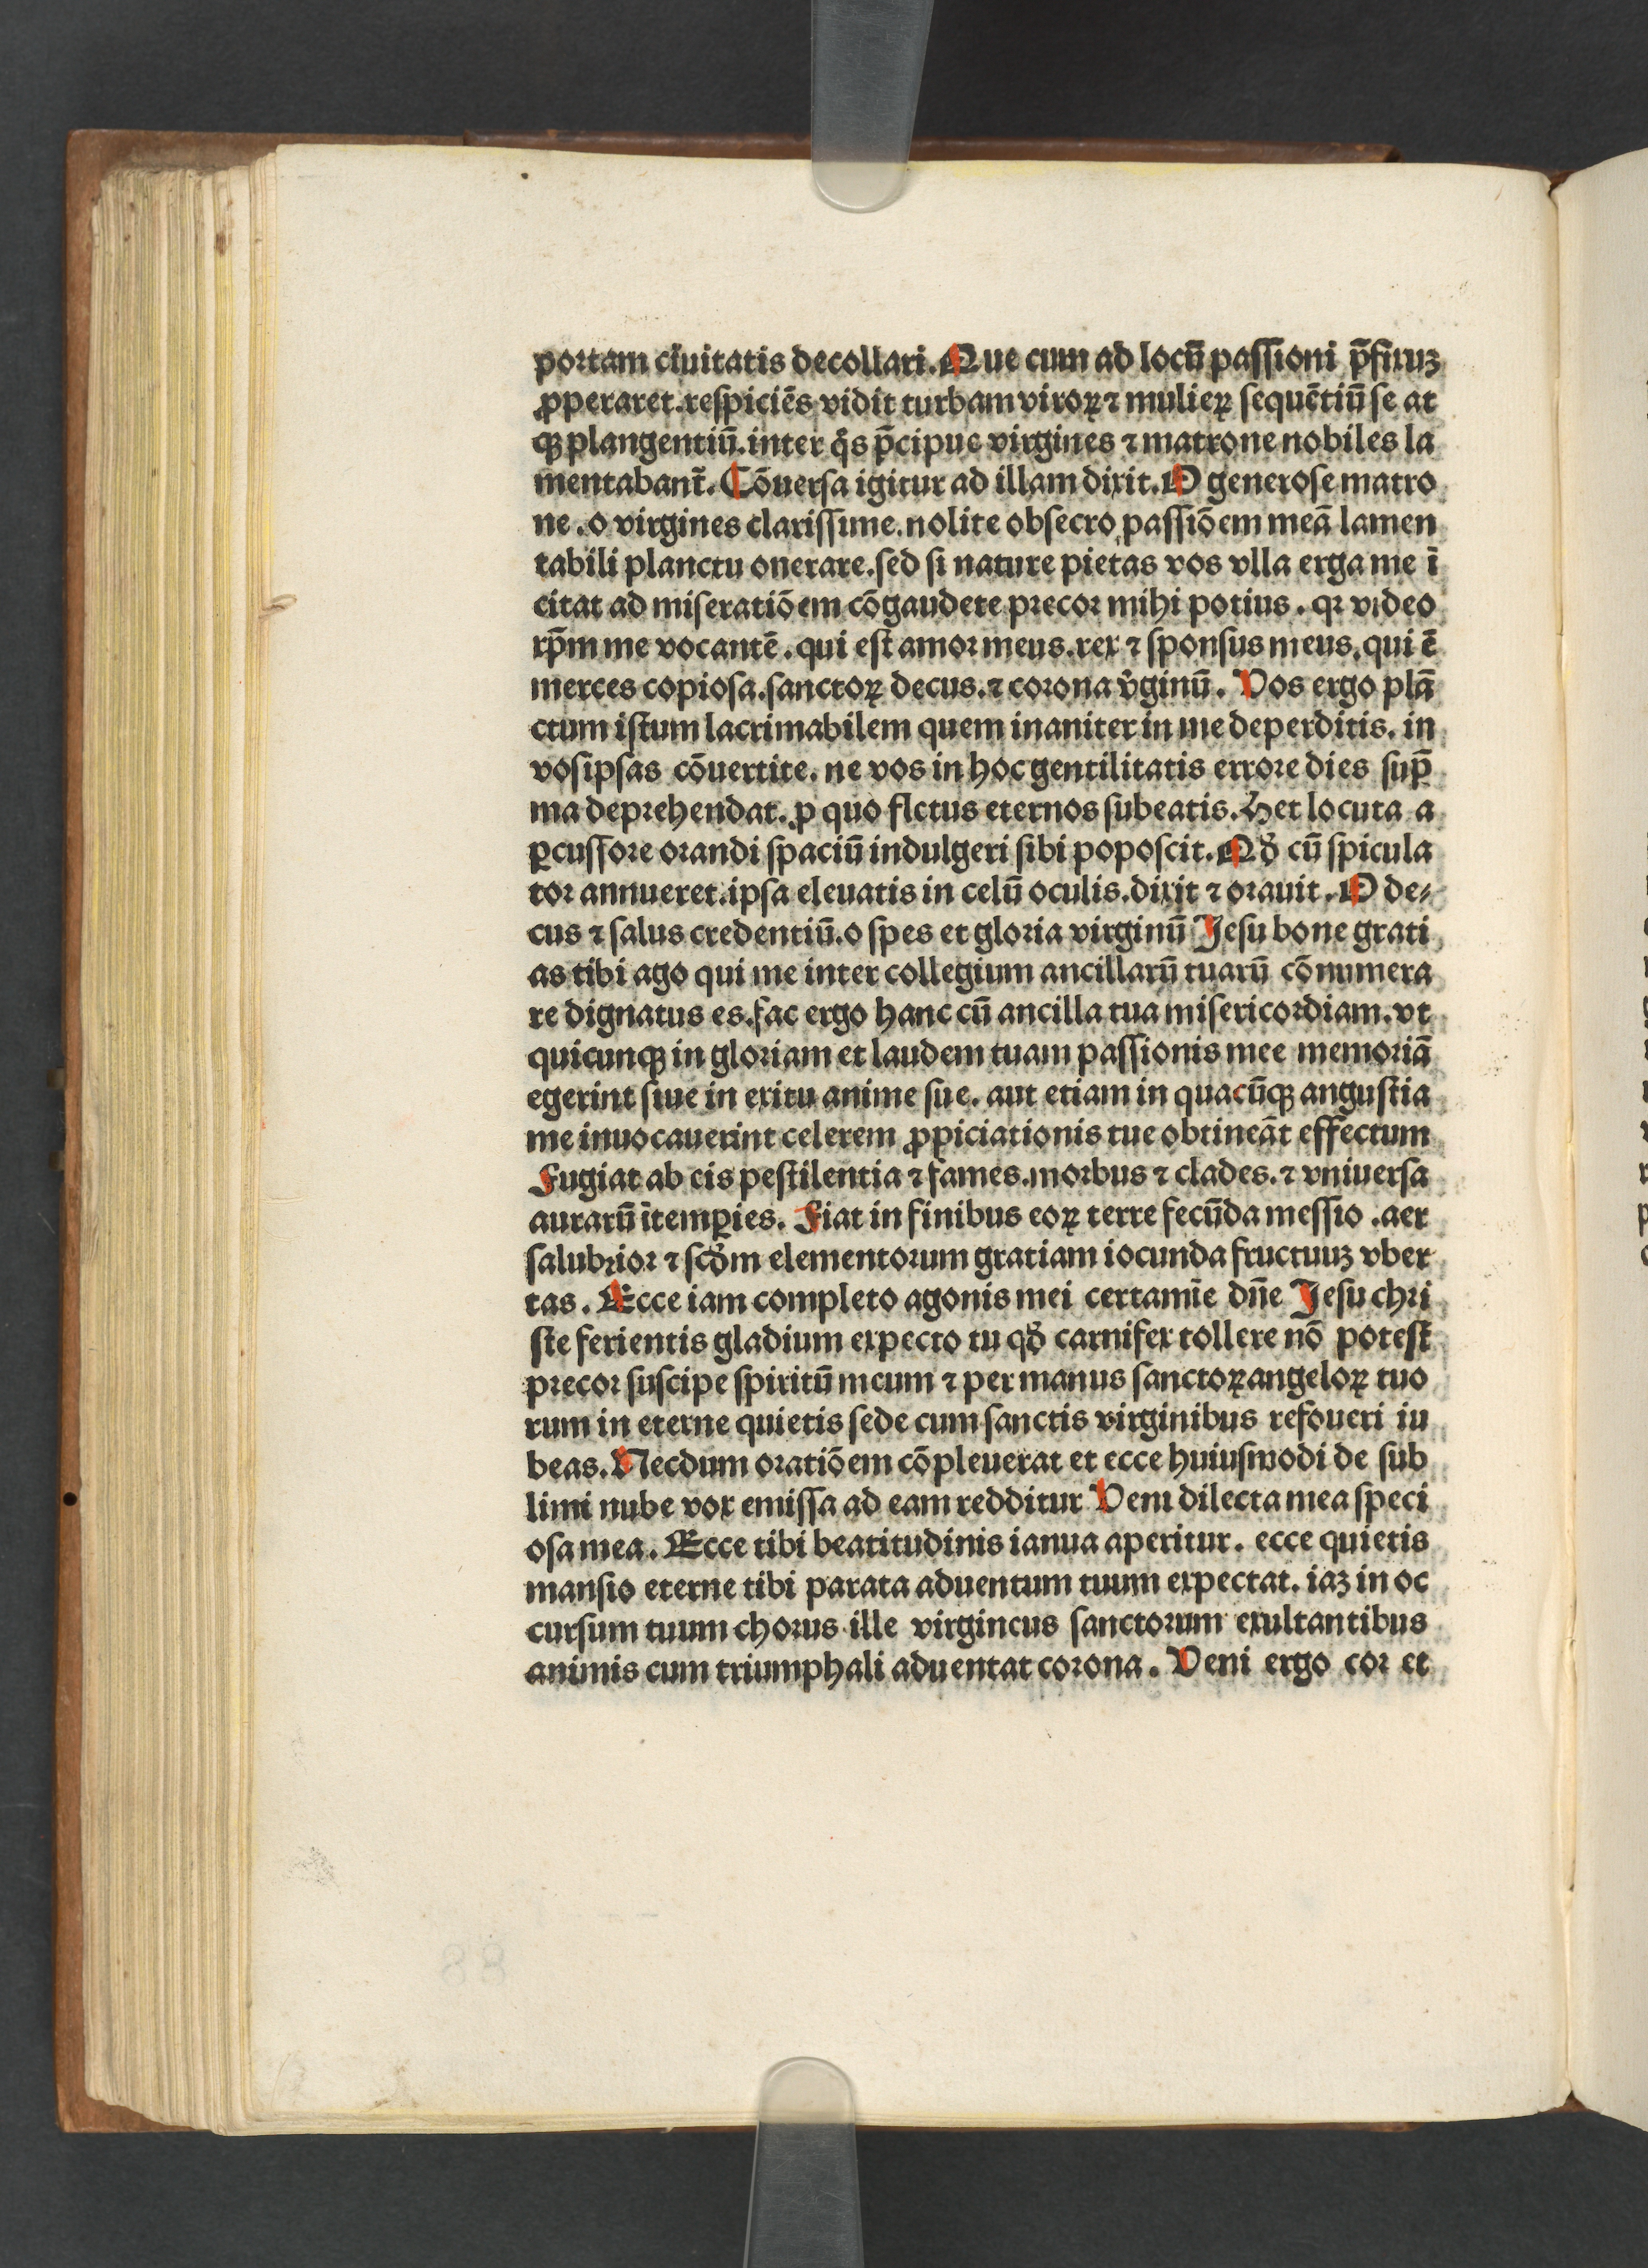 portam ciuitatis decollari. Que cum ad locū passioni p̄fixuꝫ
ꝓperaret. respiciēs vidit turbam viroꝝ ⁊ mulieꝝ sequētiū se at
qꝫ plangentiū. inter q̄s p̄cipue virgines ⁊ matrone nobiles la
mentabant̄. Cōuersa igitur ad illam dixit. O generose matro
ne. o virgines clarissime. nolite obsecro passiōem meā lamen
tabili planctu onerare. sed si nature pietas vos vlla erga me ī
citat ad miseratiōem cōgaudete precor mihi potius. qꝛ video
xp̄m me vocantē. qui est amor meus. rex ⁊ sponsus meus. qui ē
merces copiosa. sanctoꝝ decus. ⁊ corona v̓ginū. Vos ergo plā
ctum istum lacrimabilem quem inaniter in me deperditis. in
vosipsas cōuertite. ne vos in hoc gentilitatis errore dies sup̄
ma deprehendat. ꝓ quo fletus eternos subeatis. Hec locuta a
ꝑcussore orandi spaciū indulgeri sibi poposcit. Qd̓ cū spicula
tor annueret. ipsa eleuatis in celū oculis. dixit ⁊ orauit. O de⸗
cus ⁊ salus credentiū. o spes et gloria virginū Jesu bone grati
as tibi ago qui me inter collegium ancillarū tuarū cōnumera
re dignatus es. fac ergo hanc cū ancilla tua misericordiam. vt
quicunqꝫ in gloriam et laudem tuam passionis mee memoriā
egerint siue in exitu anime sue. aut etiam in quacūqꝫ angustia
me inuocauerint celerem ꝓpiciationis tue obtineāt effectum
Fugiat ab eis pestilentia ⁊ fames. morbus ⁊ clades. ⁊ vniuersa
aurarū ītemꝑies. Fiat in finibus eoꝝ terre fecūda messio. aer
salubrior ⁊ scd̓m elementorum gratiam iocunda fructuuꝫ vber
tas. Ecce iam completo agonis mei certamīe dn̄e Jesu chri
ste ferientis gladium expecto tu qd̓ carnifex tollere nō potest
precor suscipe spiritū meum ⁊ per manus sanctoꝝ angeloꝝ tuo
rum in eterne quietis sede cum sanctis virginibus refoueri iu
beas. Necdum oratiōem cōpleuerat et ecce huiusmodi de sub
limi nube vox emissa ad eam redditur Veni dilecta mea speci
osa mea. Ecce tibi beatitudinis ianua aperitur. ecce quietis
mansio eterne tibi parata aduentum tuum expectat. iaꝫ in oc
cursum tuum chorus ille virgineus sanctorum exultantibus
animis cum triumphali aduentat corona. Veni ergo cor et